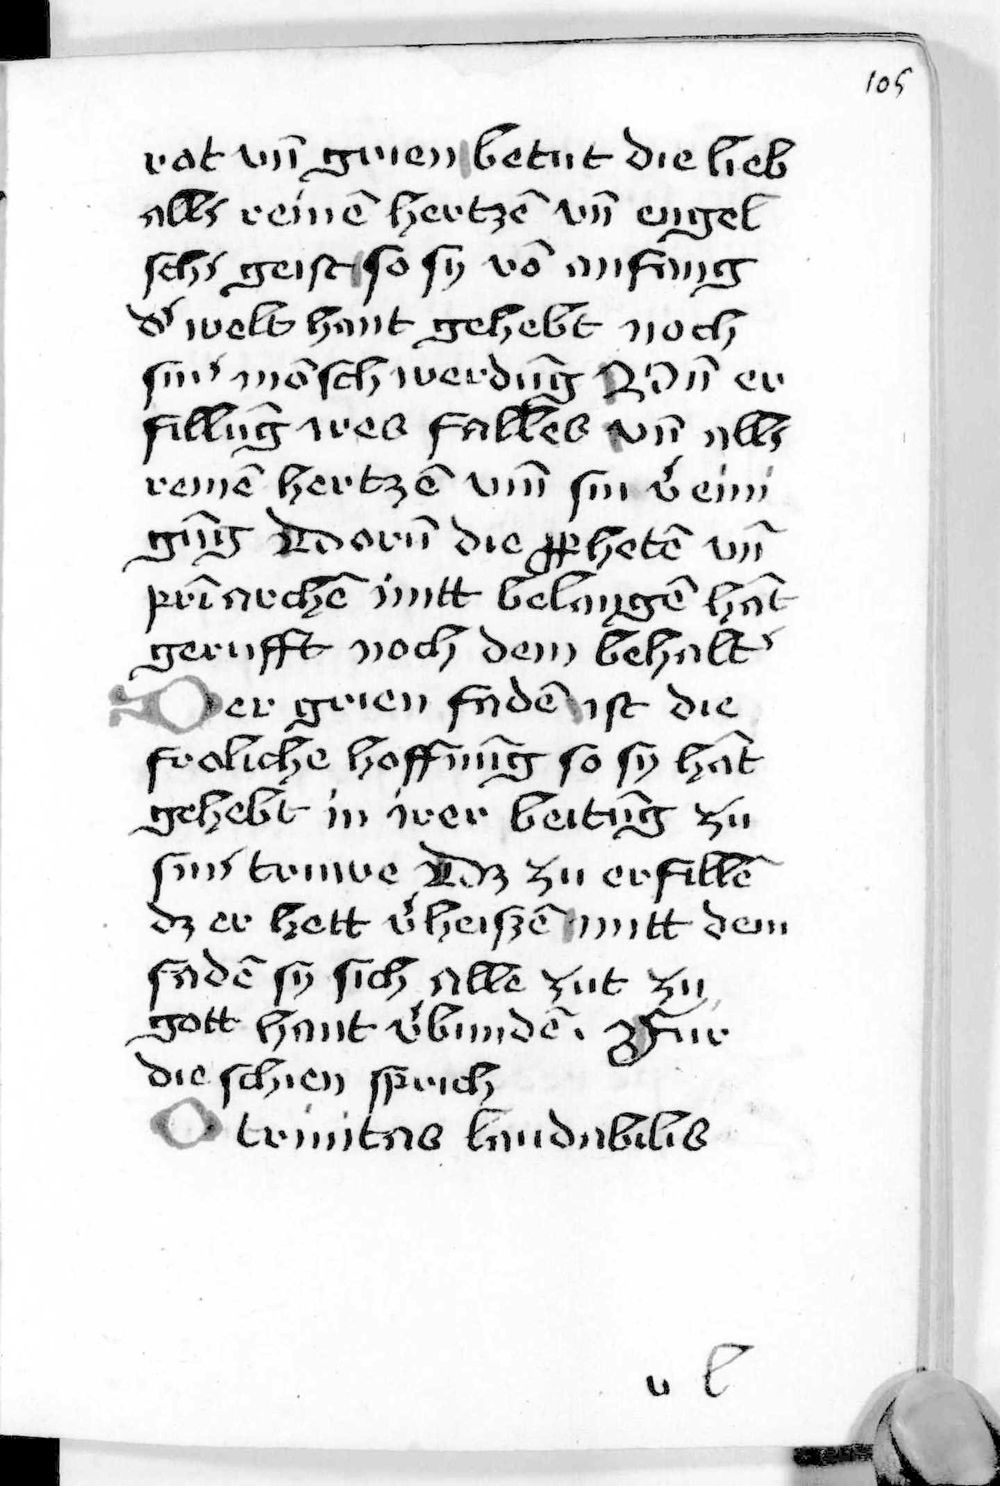 105
rot vn̄ grien betut die lieb
allr reinē hertzē vn̄ engel
schr geist so sy vō anfang
dr welt hant gehebt noch
sinr mōschwerdūg Vn̄ er
fillūg ires falles vn̄ allr
reinē hertzē vnn̄ sin v̓eini
gūg Dorū die ꝓphetē vn̄
prīarchē mitt belangē hāt
gerufft noch dem behaltr
Der grien fadē ist die
froliche hoffnūg so sy hāt
gehebt in irer beitūg zu
sinr truwe Dz zu erfillē
dz er hett v̓heiszē mitt dem
fadē sy sich alle zit zu
gott hant v̓bundē. Für
die schien sprich
O trinitas laudabilis